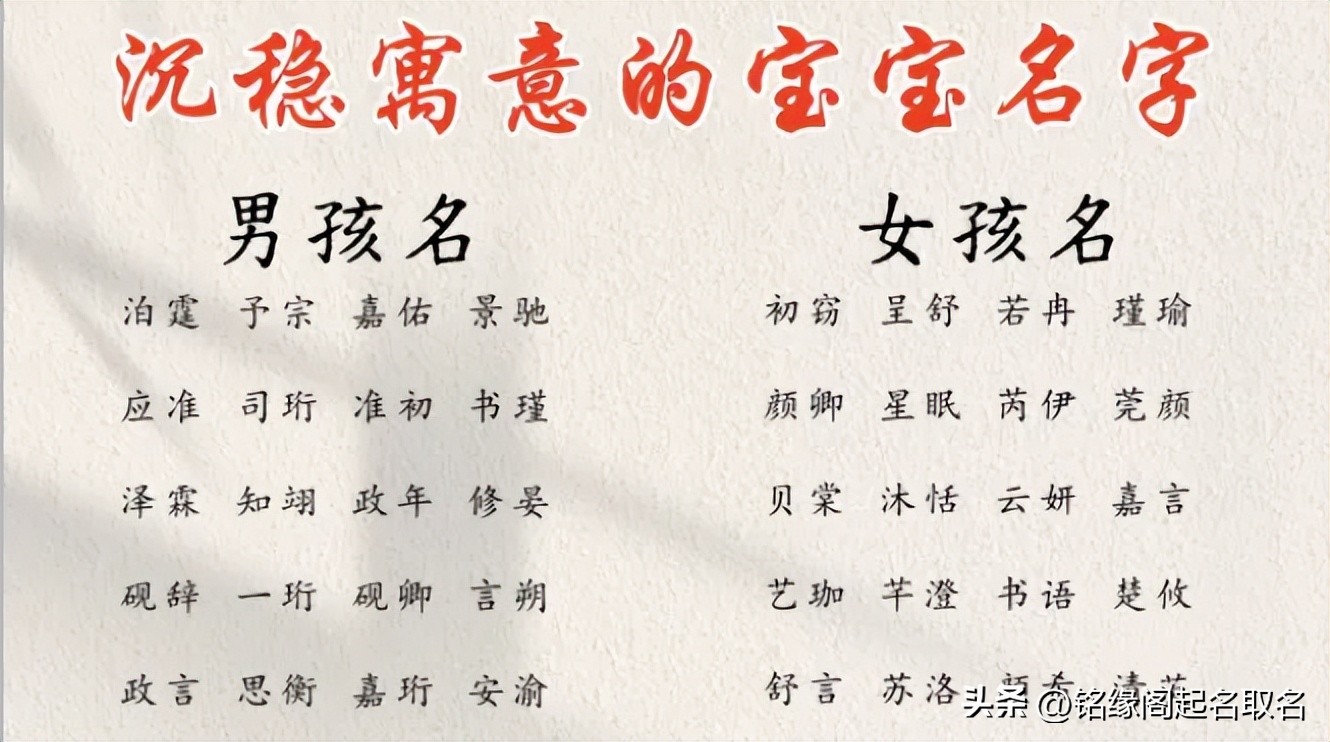 沉稳寓意的宝宝名字
男孩名 女孩名
泊霆 予宗 嘉佑 景驰 初窈 呈舒 若冉 瑾瑜
应准 司珩 准初 书瑾 颜卿 星眠 芮伊 莞颜
泽霖 知翊 政年 修晏 贝棠 沐恬 云妍 嘉言
砚辞 一珩 砚卿 言朔 艺珈 芊澄 书语 楚攸
政言 思衡 嘉珩 安渝 舒言 苏洛
头条 @铭缘阁起名取名